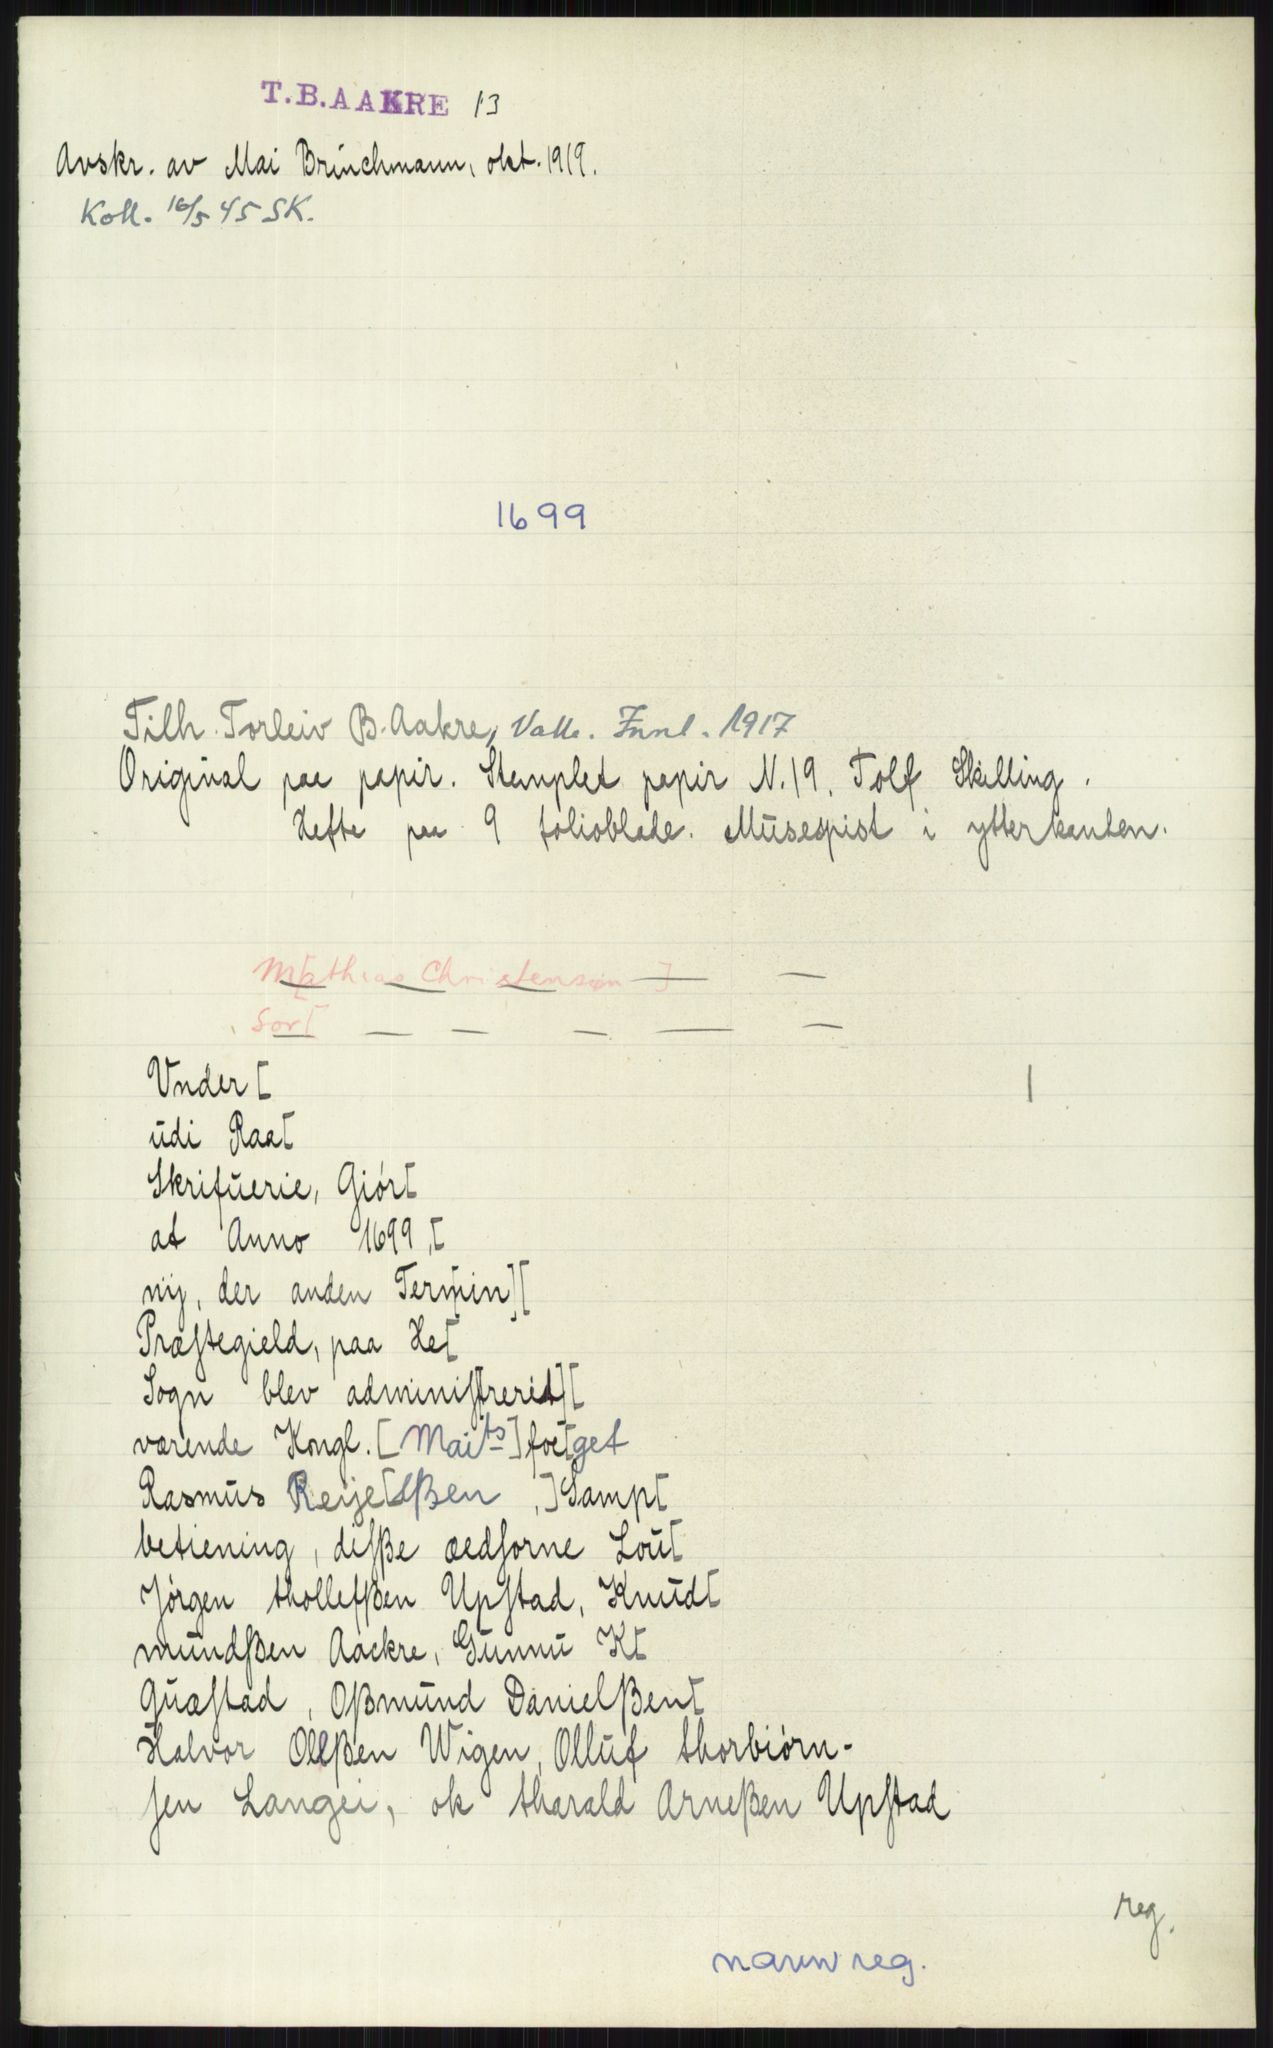 T.B.AAKRE 13
Avskr. av Mai Brinchmann, okt. 1919.
Koll. 16/5 45 SK.
1699
Tilh. Torleiv B. Aakre, Valle. Innl. 1917
Original paa papir. Stemplet papir N. 19. Tolf Skilling.
Hefte paa 9 folioblade. Musespist i ytterkanten.
M[athias Christensøn — ] —
Sor[ — — — — —
Vnder [
udi Raa[
Skrifuerie, Giór[
af Anno 1699,[
nij, der anden Term[in][
Præstegield, paa He[
Sogn blev administ[rerit][
værende Kongl. [Maits] fo[get
Rasmus Reije[dßen ,] Samp[
betiening, disße æedsorne Lou[
Jórgen thollefßen Upstad, Knud[
mundßen Aackre, Gunnu K[
Quæstad, Oßmund Danielßen[
Halvor Olleßen Wigen, Olluf thorbiórn-
sen Langei, ok tharald Arneßen Upstad
reg.
navnreg.